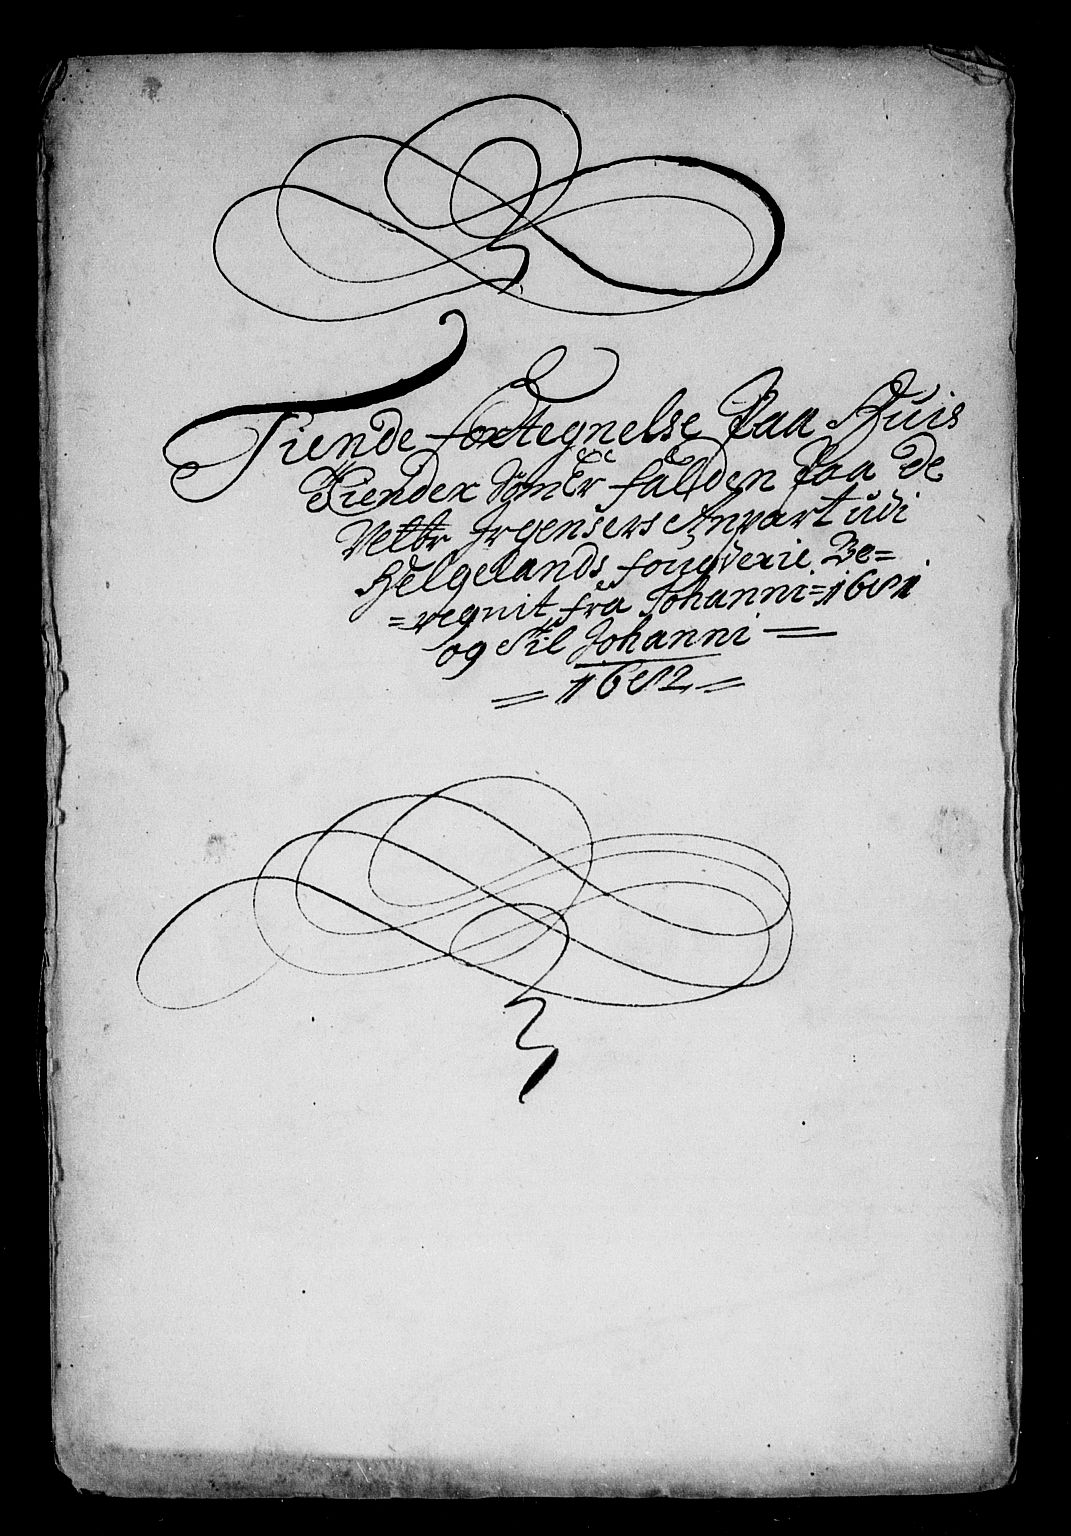 Tiende fortegnelse Paa Huis
Tiender Som Er falden Paa De
Velbr Irgensers Anpart udi
Helgelands fougderie Be=
=regnit fra Johanni=1681
og Til Johanni
1682